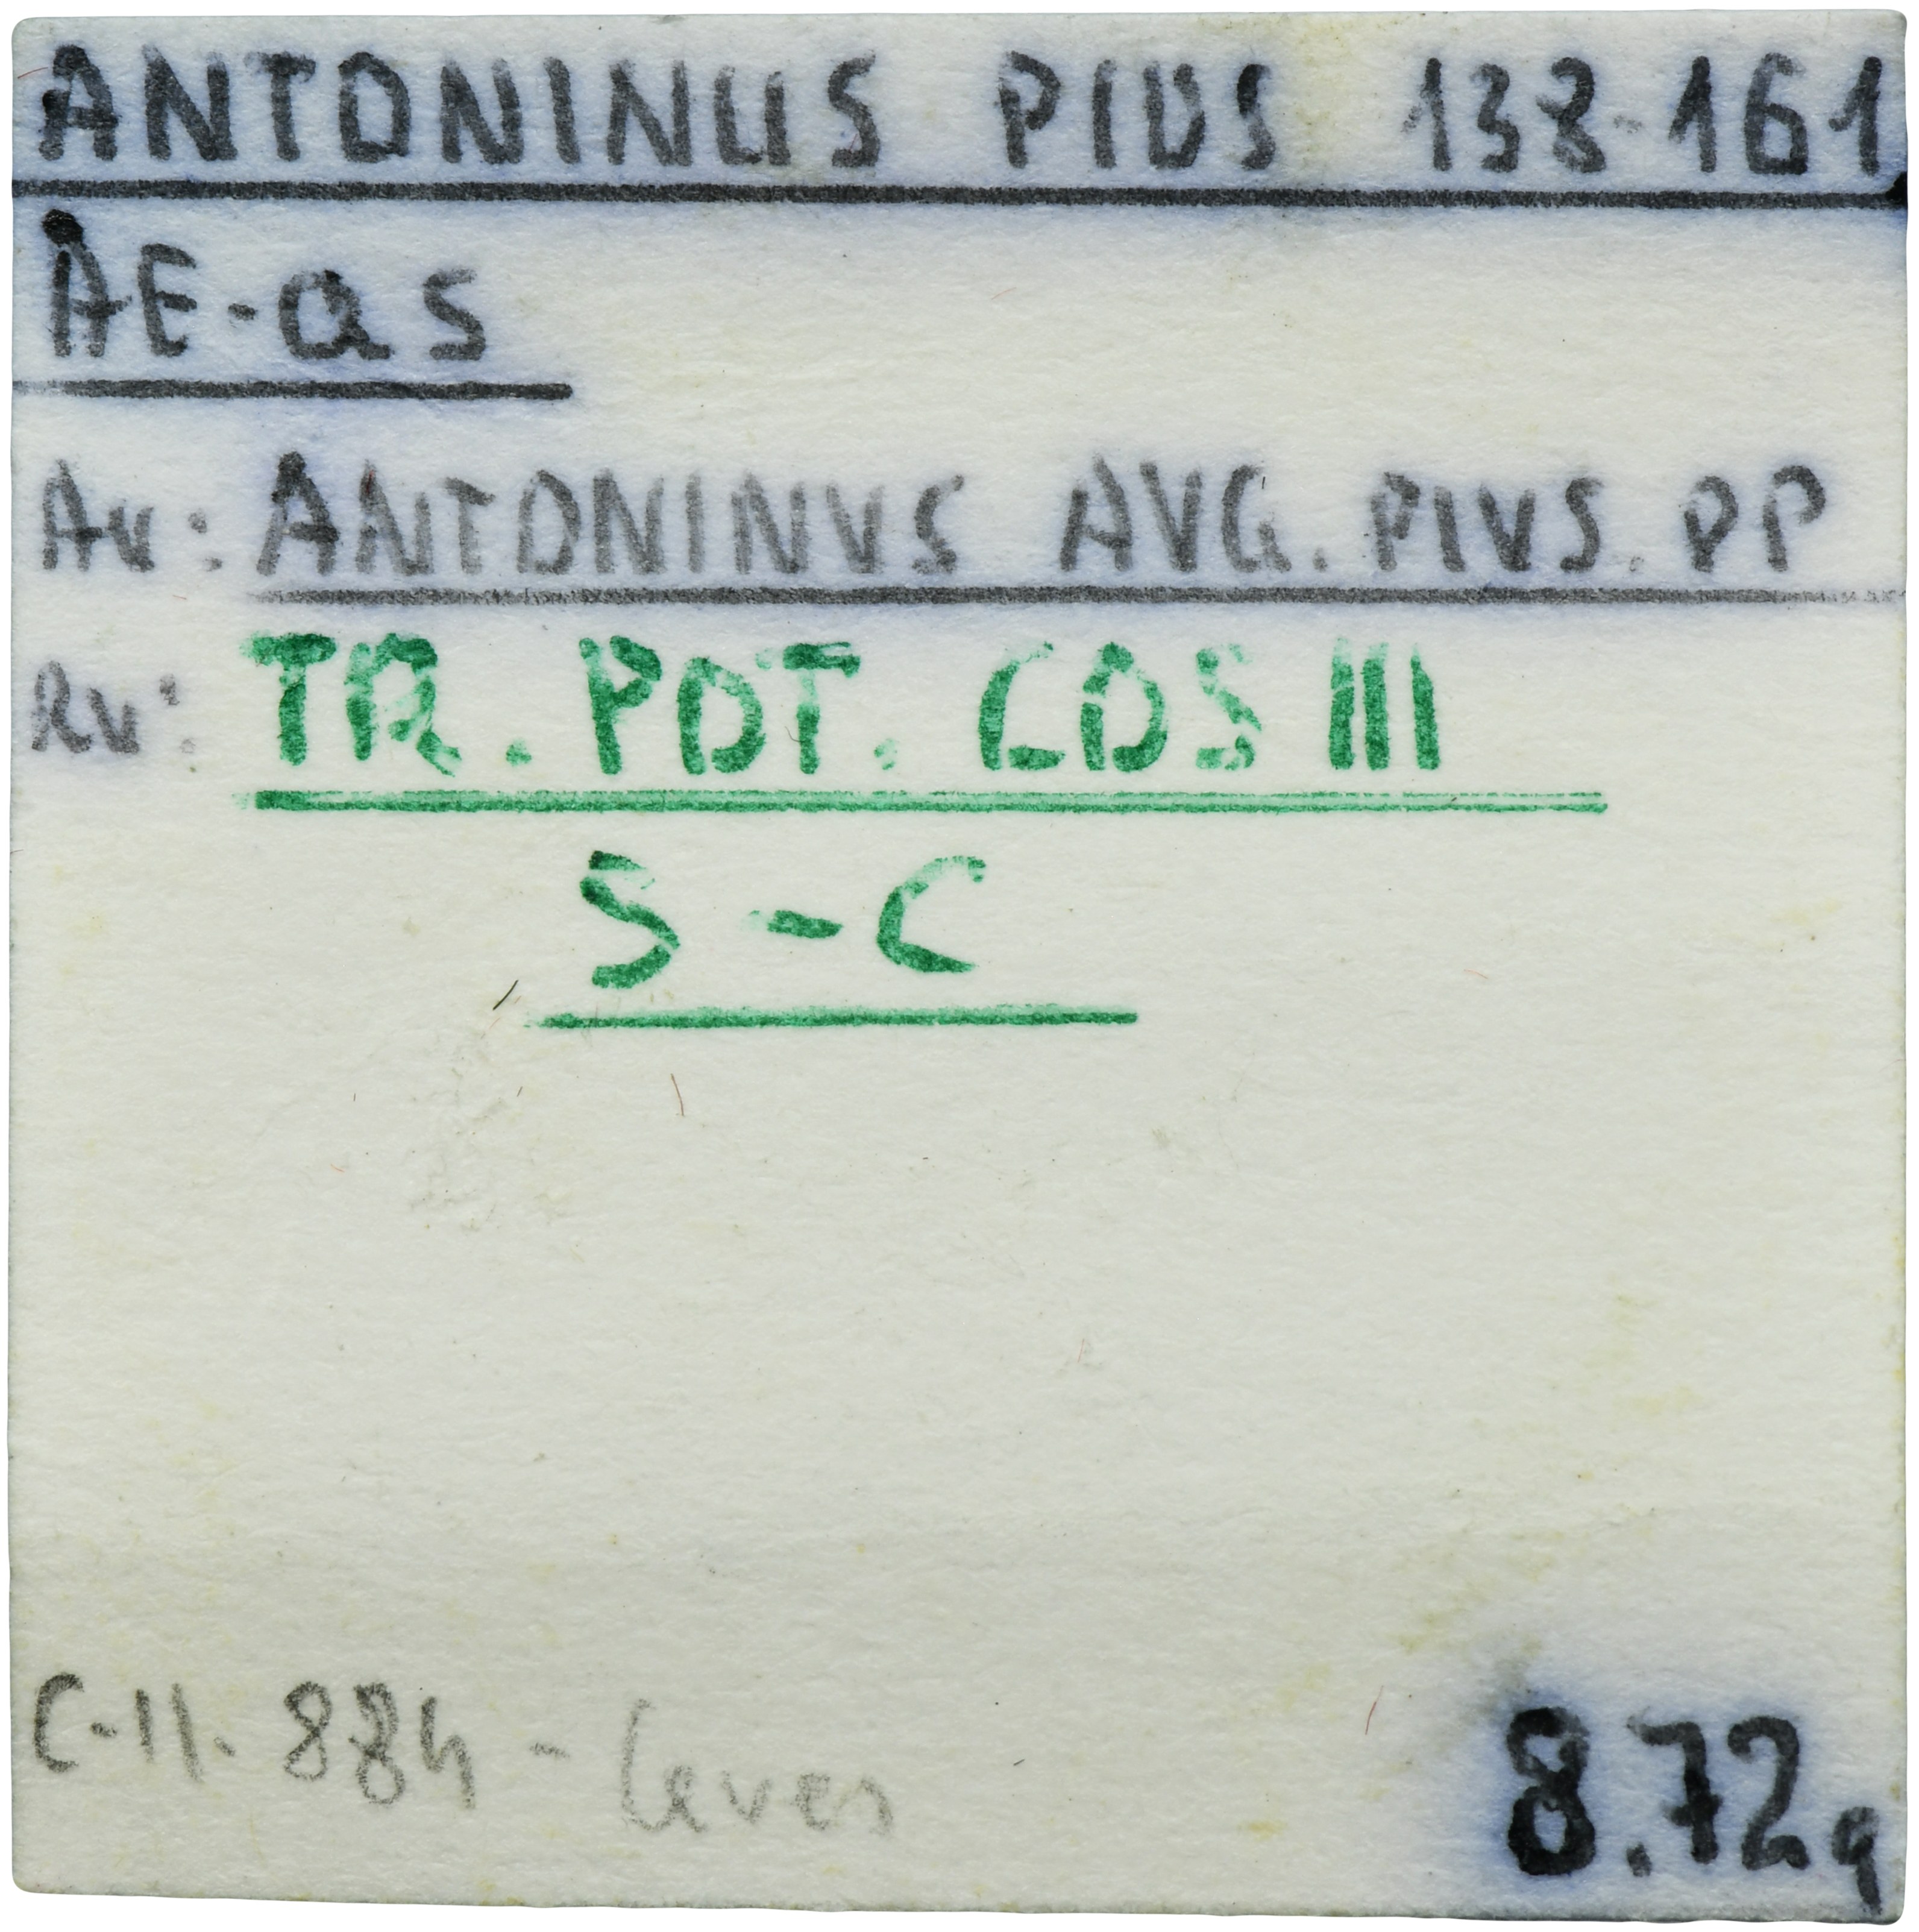 ANTONINUS PIUS 138-161
AE-as
Av: ANTONINVS AVG. PIVS. PP
Rv: TR. POT. COS III
S-C
C-11. 884 -
8.72g